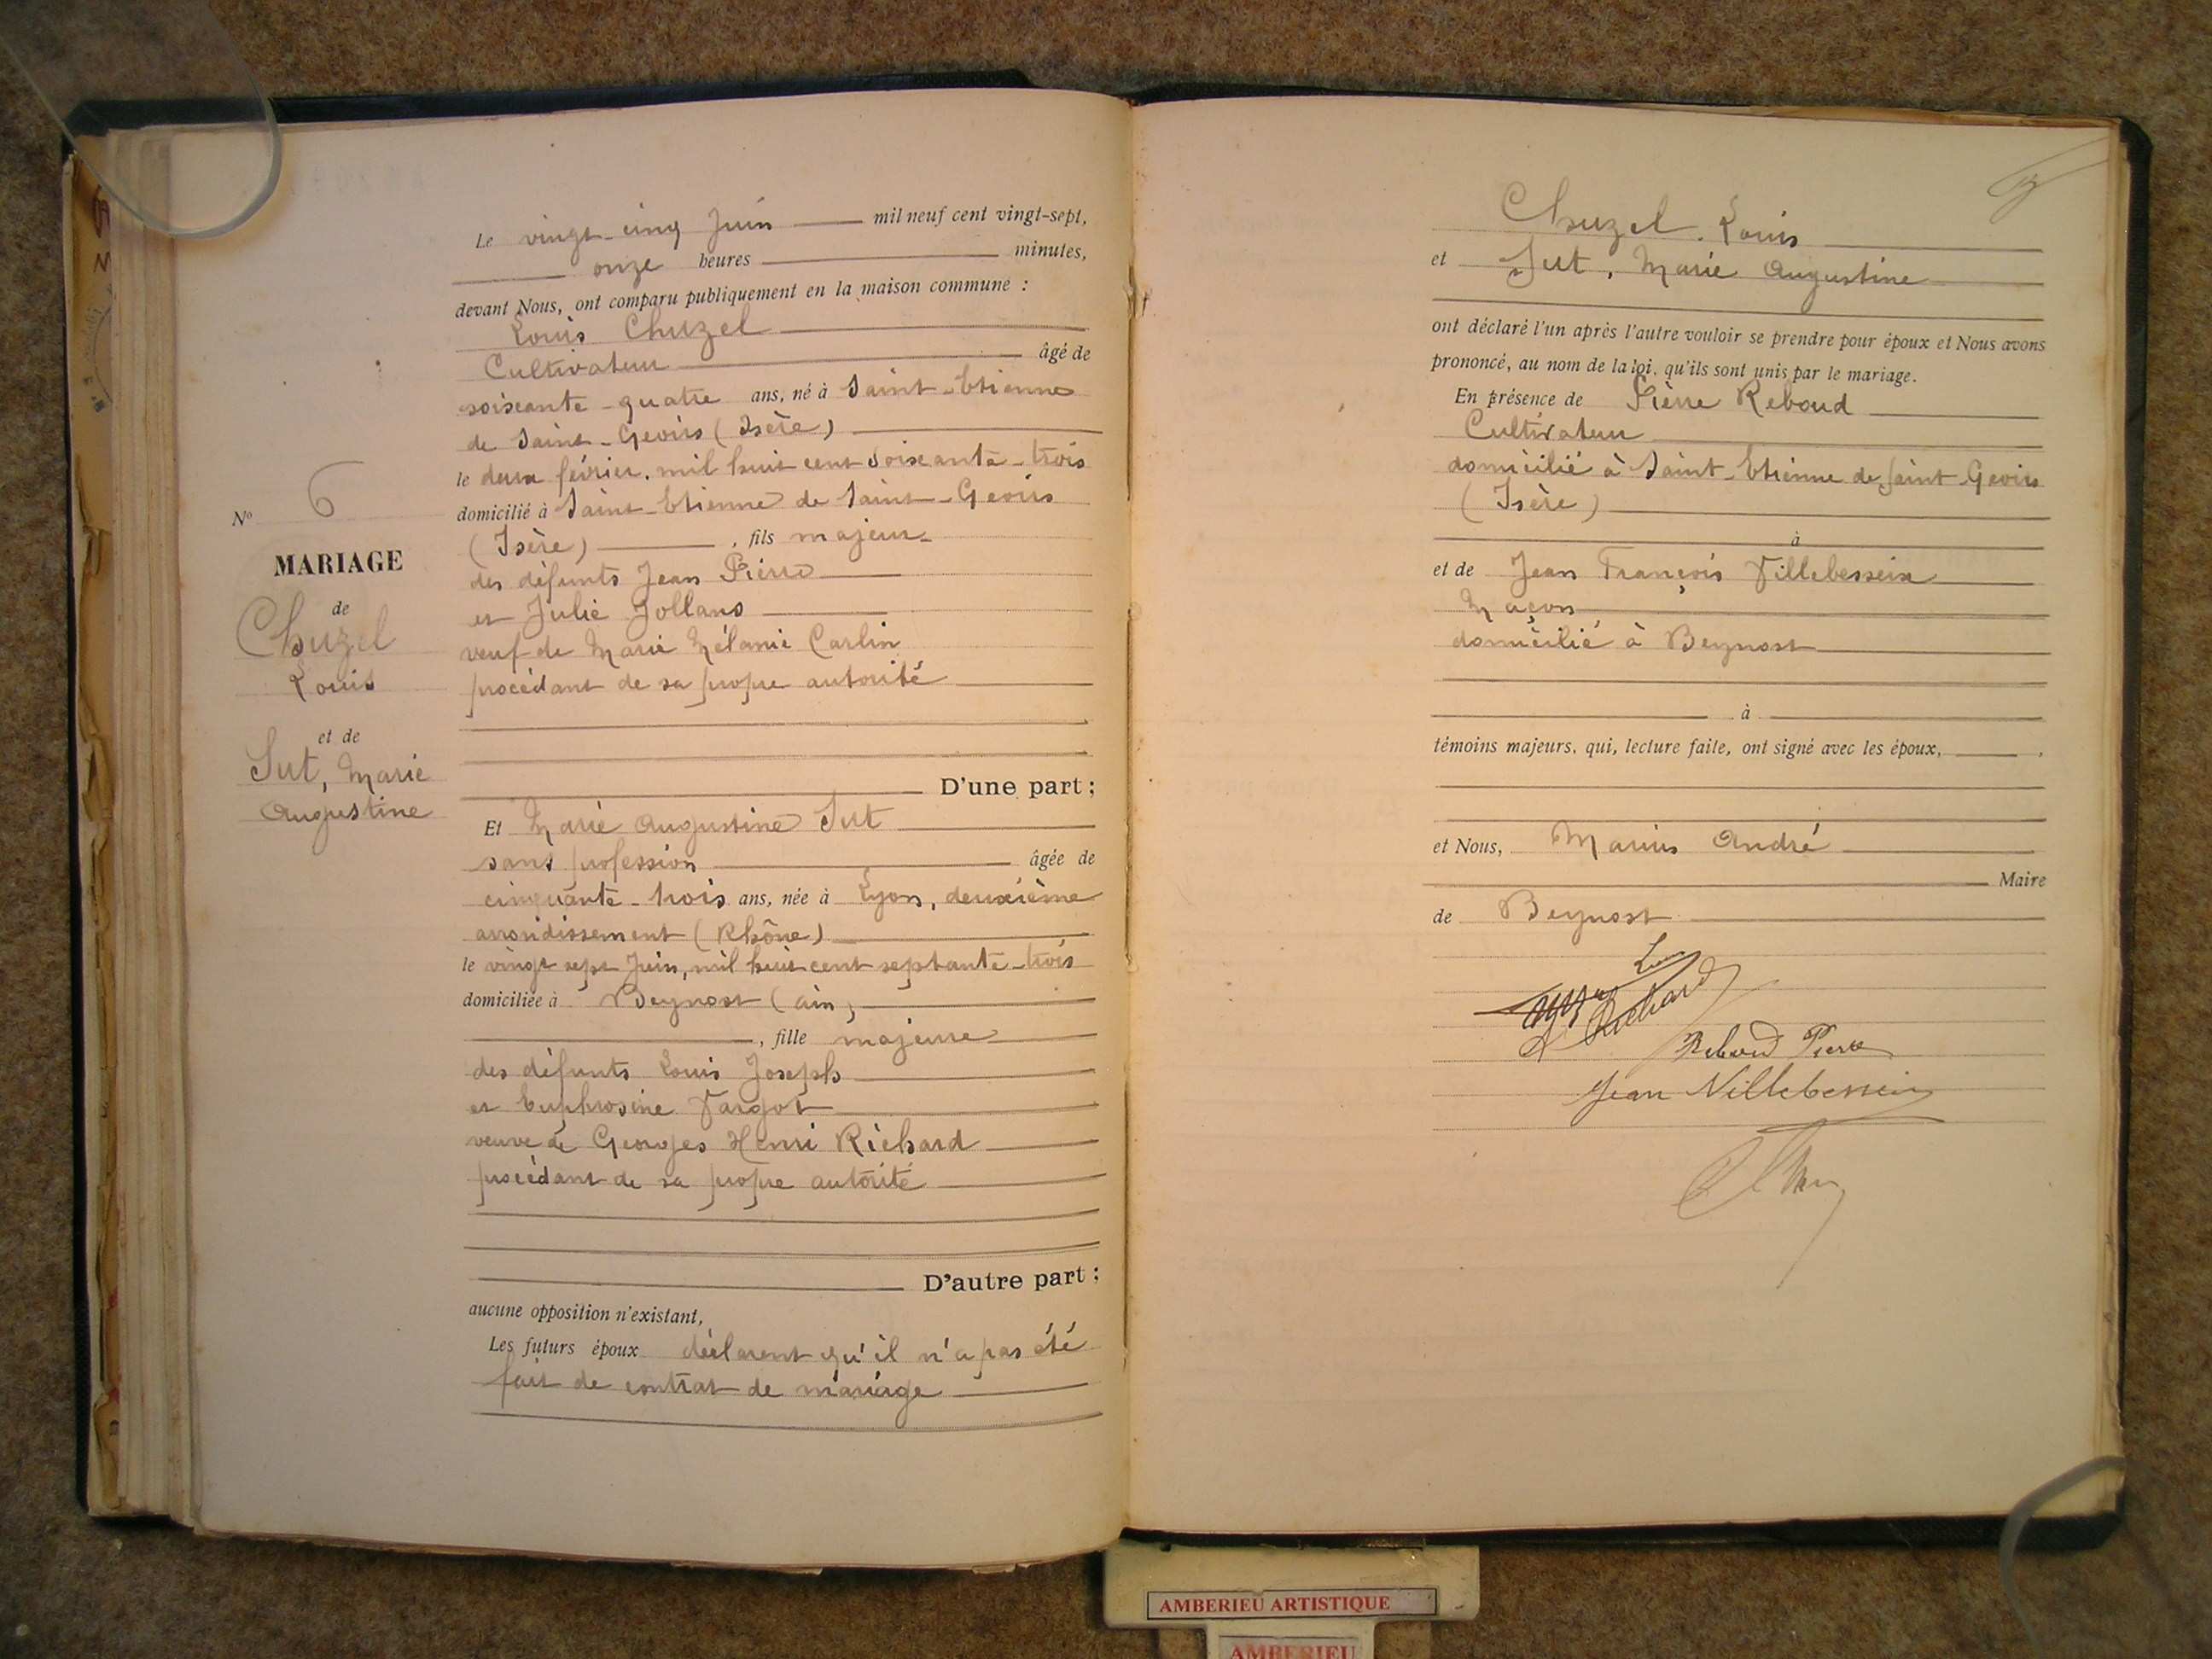 Le vingt-cinq Juin mil neuf cent vingt-sept,
onze heures minutes,
devant Nous, ont comparu publiquement en la maison commune :
Louis Chuzel
Cultivateur âgé de
soixante-quatre ans, né à Saint-Etienne
de Saint-Geoirs (Isère)
le deux février, mil huit cent soixante-trois
domicilié à Saint-Etienne de Saint-Geoirs
(Isère) , fils majeur
des défunts Jean Pierre
et Julie Jollans
veuf de Marie Mélanie Carlin
procédant de sa propre autorité
D'une part ;
N° 6
MARIAGE
de
Chuzel
Louis
et de
Sut, Marie
Augustine
Et Marie Augustine Sut
sans profession âgée de
cinquante-trois ans, née à Lyon, deuxième
arrondissement (Rhône)
le vingt sept Juin, mil huit cent septante-trois
domiciliée à Beynost (Ain)
, fille majeure
des défunts Louis Joseph
et Euphrosine Vargot
veuve de Georges Henri Richard
procédant de sa propre autorité
D'autre part :
aucune opposition n'existant,
Les futurs époux déclarent qu'il n'a pas été
fait de contrat de mariage
Chuzel, Louis
et Sut, Marie Augustine
ont déclaré l'un après l'autre vouloir se prendre pour époux et Nous avons
prononcé, au nom de la loi, qu'ils sont unis par le mariage.
En présence de Pierre Reboud
Cultivateur
domicilié à Saint-Etienne de Saint-Geoirs
(Isère)
à
et de Jean François Villebesseix
Maçon
domicilié à Beynost
à
témoins majeurs, qui, lecture faite, ont signé avec les époux,
et Nous, Marius André
Maire
de Beynost
Richard
Reboud Pierre
Jean Villebesseix
AMBERIEU ARTISTIQUE
AMBERIEU